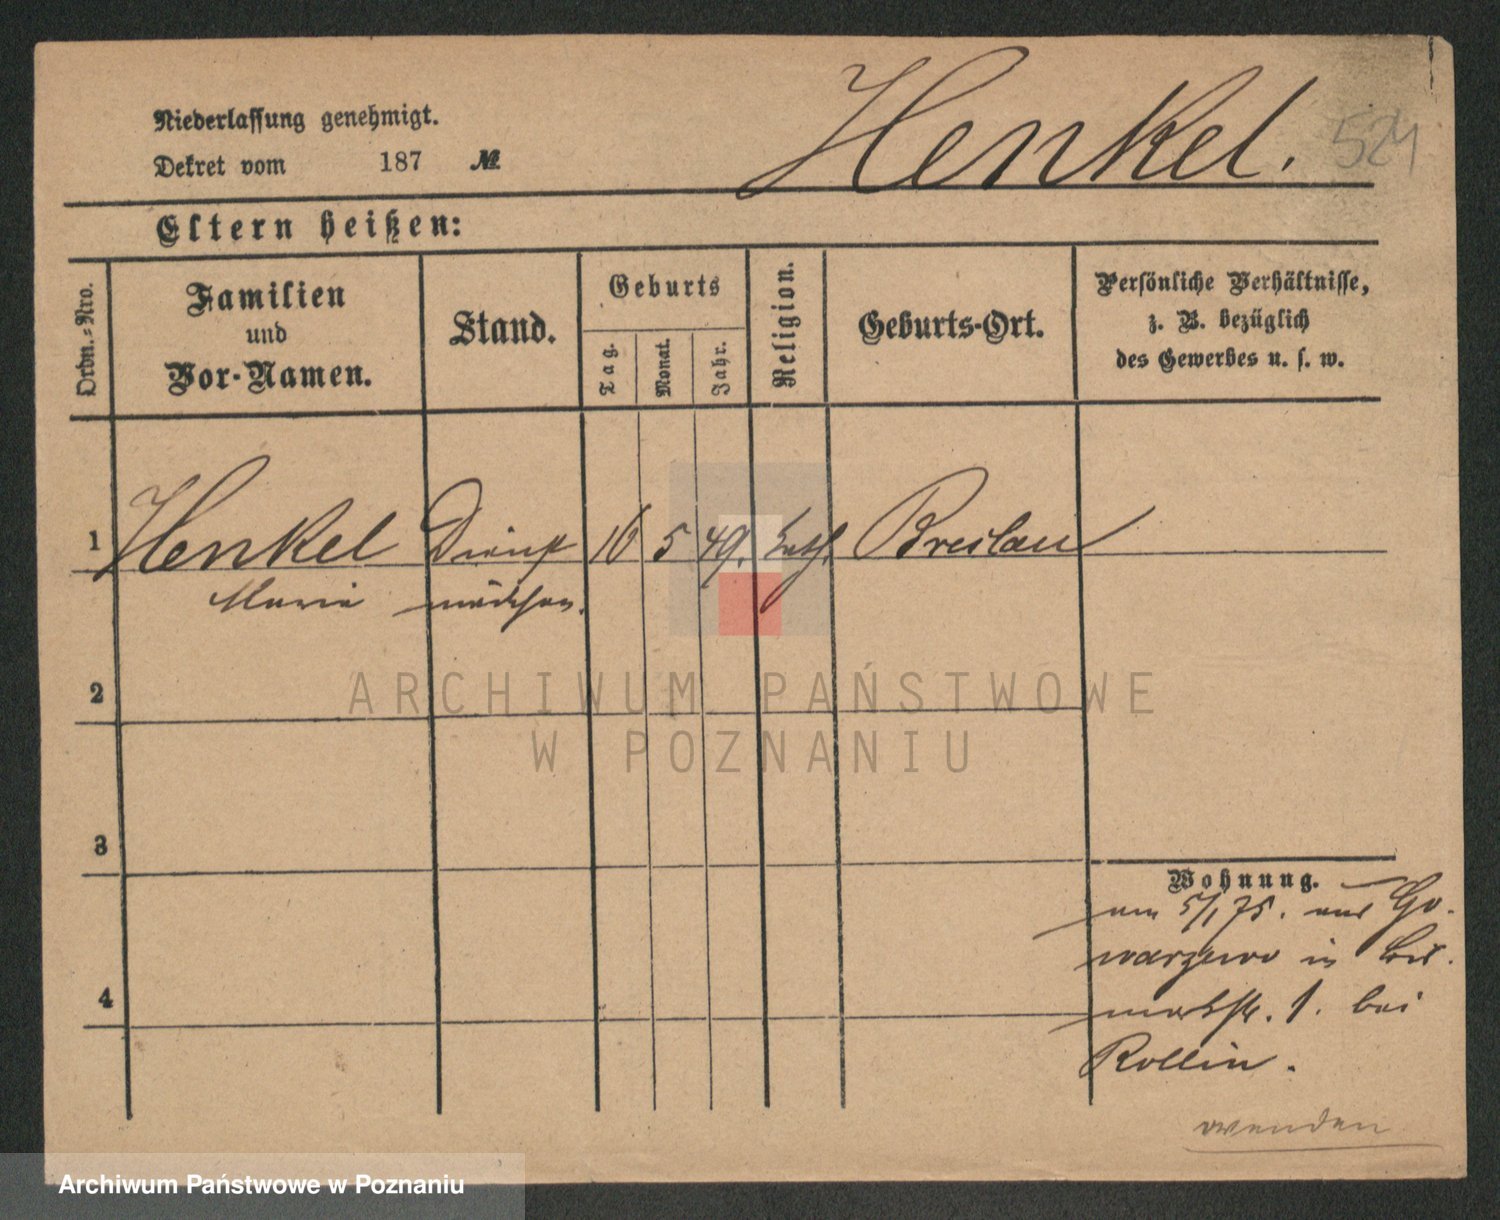 Niederlassung genehmigt.
Dekret vom 187 №
Henkel.
524
Eltern heißen:
Ordn.-Nro.
Familien
und
Vor-Namen.
Stand.
Geburts
Tag.
Monat.
Jahr.
Religion.
Geburts-Ort.
Persönliche Verhältnisse,
z. B. bezüglich
des Gewerbes u. s. w.
1 Henkel Dienst 16 5 49. kath. Breslau
Marie mädchen.
2
3
4
Wohnung.
am 5/1 75. aus Go-
warzewo in Bis-
markstr. 1. bei
Rollin.
wenden
ARCHIWUM PAŃSTWOWE
W POZNANIU
Archiwum Państwowe w Poznaniu